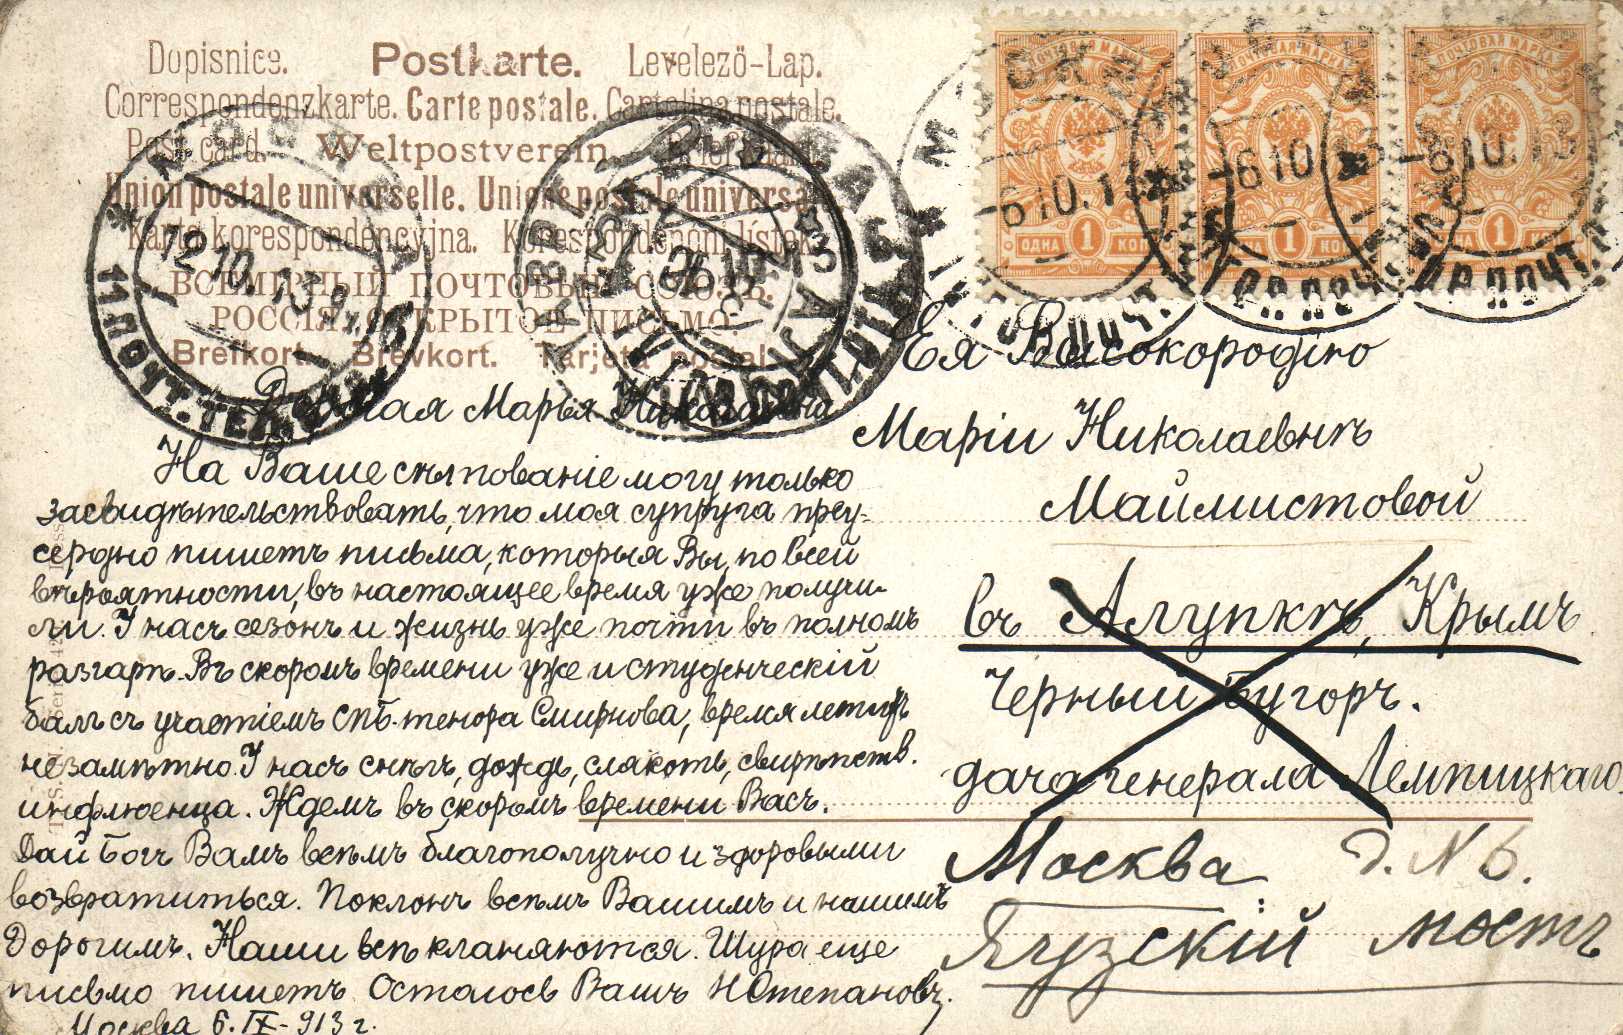 Dopisnice. Postkarte. Levelező-Lap.
Correspondenzkarte. Carte postale. Cartolina postale.
Post card. Weltpostverein.
Union postale universelle. Unione postale universale
Karta korespondencyjna. Korespondenčni listek
ВСЕМІРНЫЙ ПОЧТОВЫЙ СОЮЗЪ.
РОССІЯ. ОТКРЫТОЕ ПИСЬМО.
Brefkort. Brevkort. Tarjeta postal
МОСКВА
12 10. 13
11 ПОЧТ. ТЕЛ.
АЛУПКА
ПОЧТОВАЯ МАРКА
ПОЧТОВАЯ МАРКА
ПОЧТОВАЯ МАРКА
МОСКВА
6 10. 13
-6 10
-6 10. 13
ОДНА 1 КОП
ОДНА 1 КОП
ОДНА 1 КОП
ГОР. ПОЧТ.
Дорогая Марья Николаевна
На Ваше сѣтованіе могу только
засвидѣтельствовать, что моя супруга преу-
сердно пишетъ письма, которыя Вы, по всей
вѣроятности, въ настоящее время уже получи-
ли. У насъ сезонъ и жизнь уже почти въ полномъ
разгарѣ. Въ скоромъ времени уже и студенческій
балъ съ участіемъ СПБ. тенора Смирнова, время летитъ
незамѣтно. У насъ снѣгъ, дождь, слякоть, свирѣпств.
инфлюенца. Ждемъ въ скоромъ времени Васъ.
Дай Богъ Вамъ всѣмъ благополучно и здоровыми
возвратиться. Поклонъ всѣмъ Вашимъ и нашимъ
Дорогимъ. Наши всѣ кланяются. Шура еще
письмо пишетъ. Остаюсь Вашъ Н Степановъ.
Москва 6. IX - 913 г.
Ея Высокородію
Маріи Николаевнѣ
Маймистовой
въ Алупкѣ, Крымъ
Черный Бугоръ.
дача генерала Лемпицкаго.
Москва д. N 6.
Яузскій мостъ